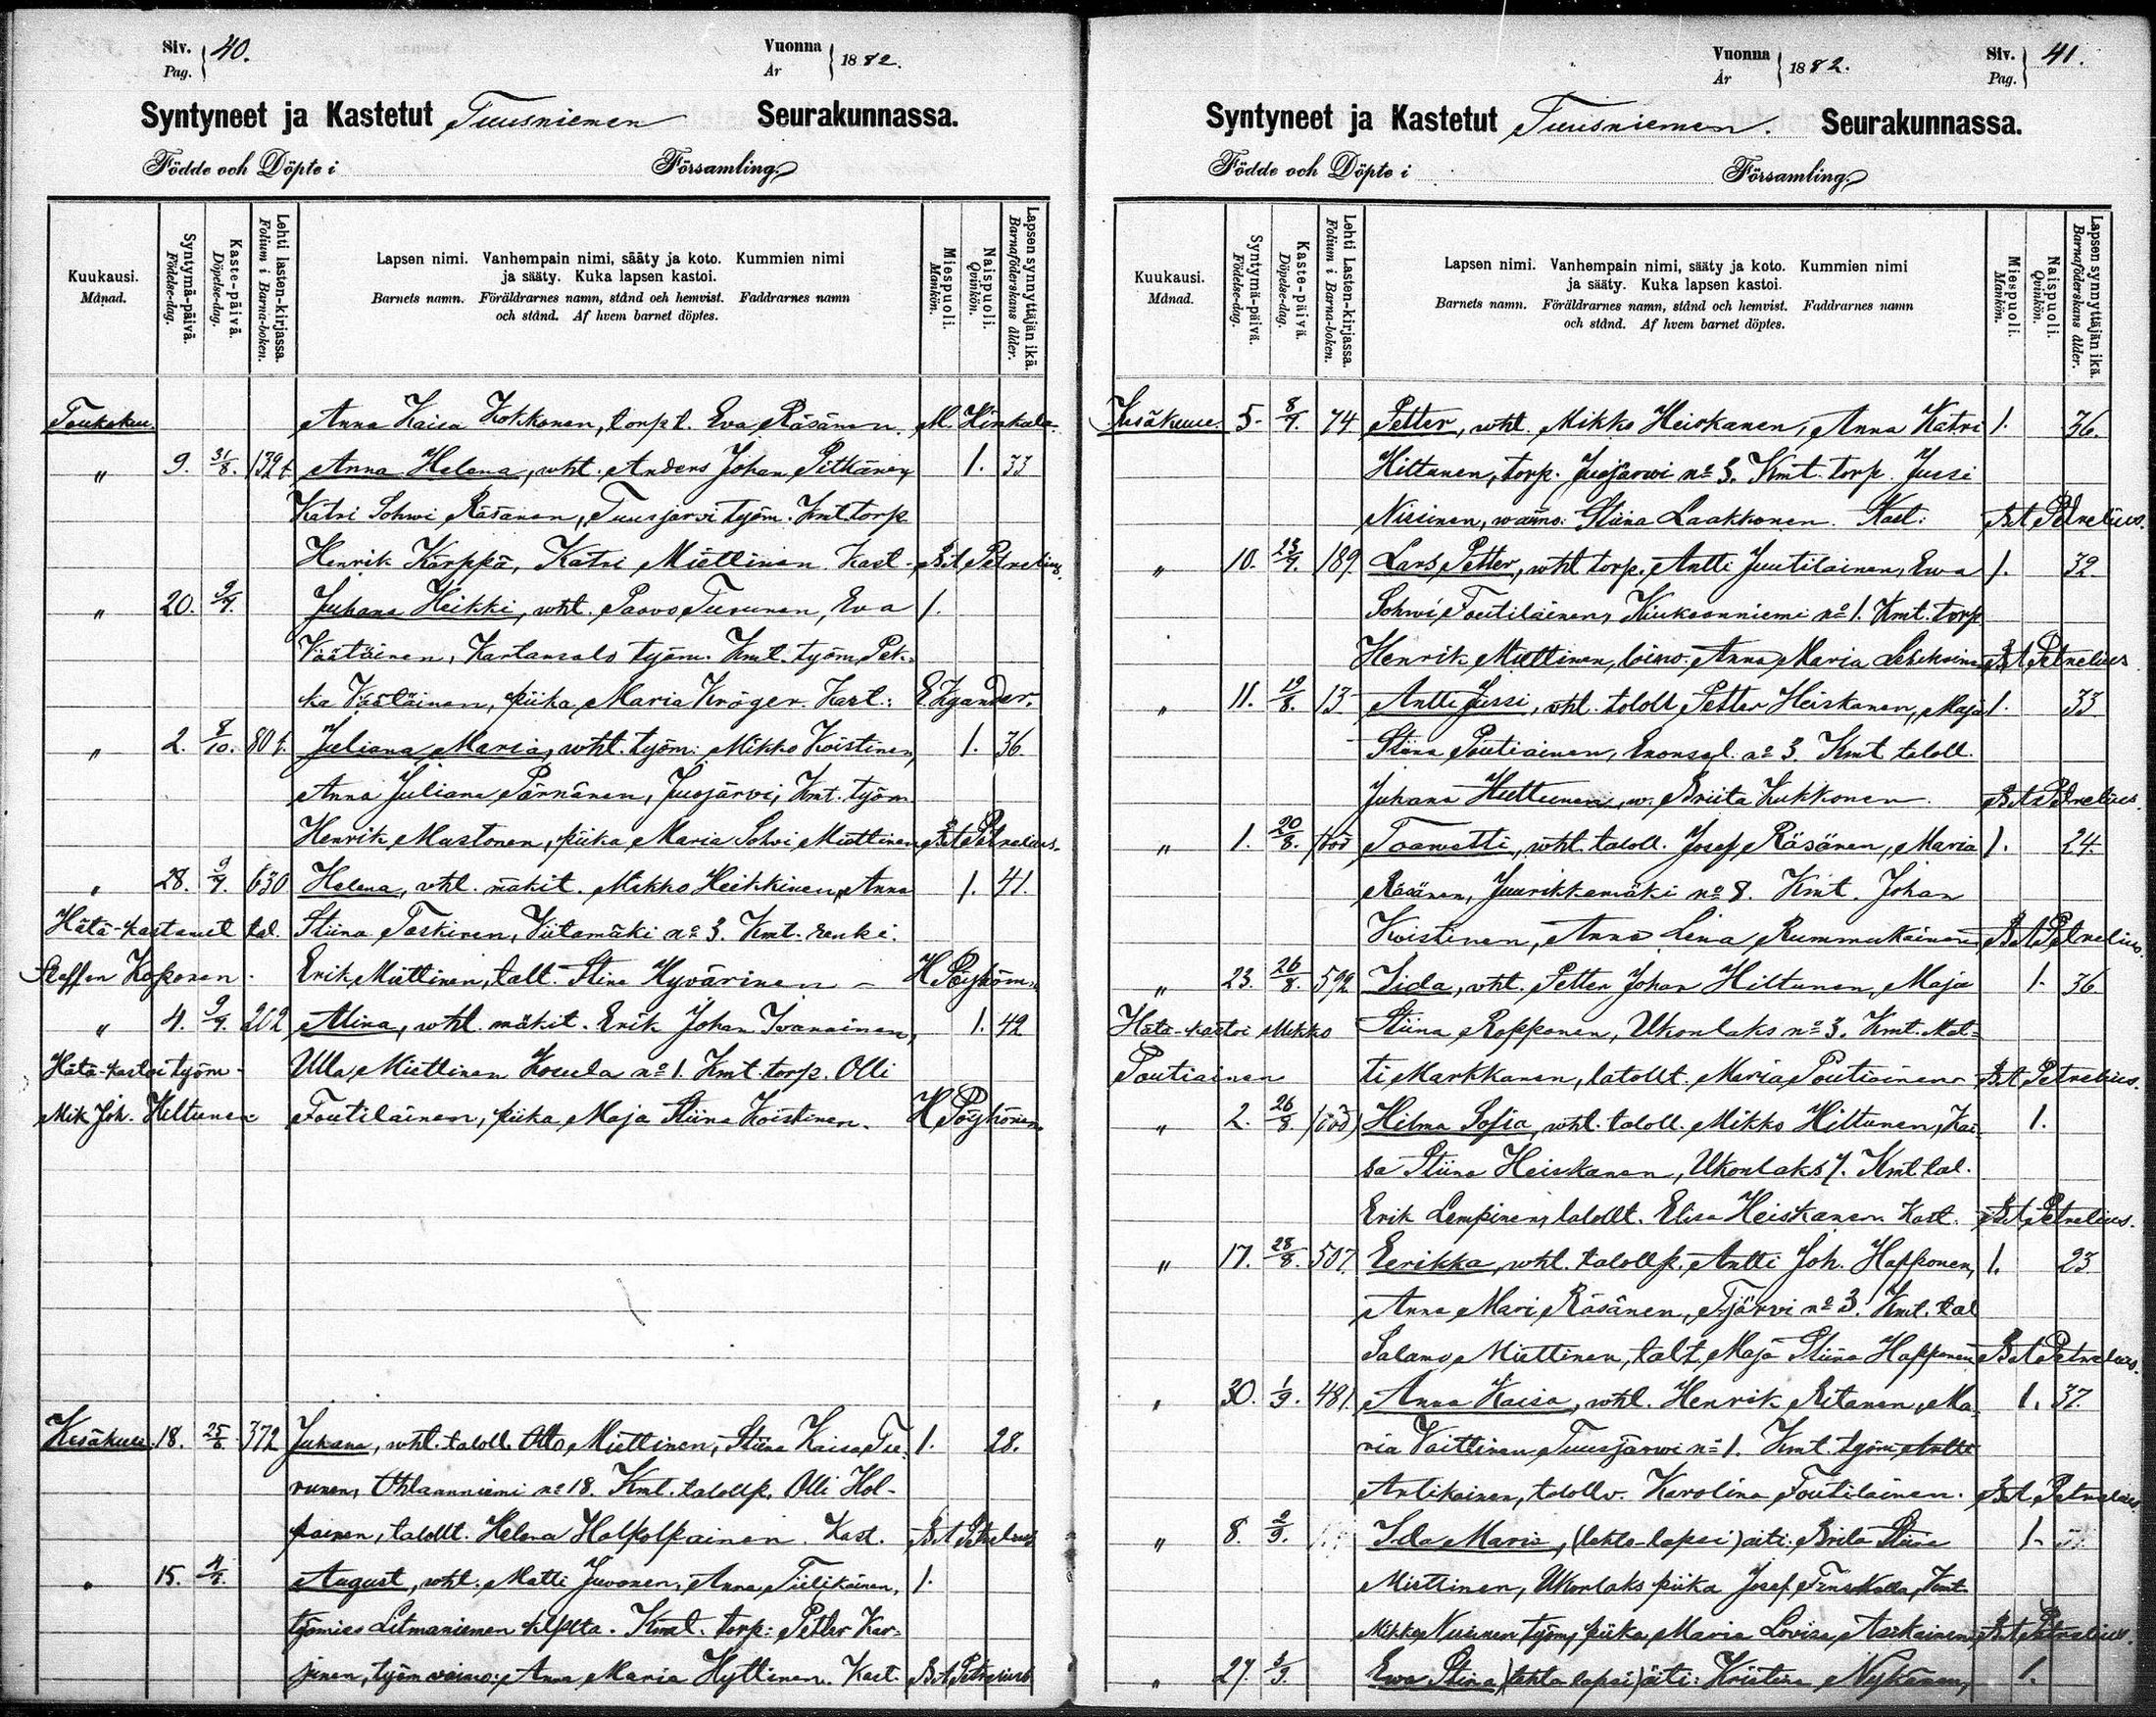 Siv. 40.
Pag.
Vuonna 1882.
År
Syntyneet ja Kastetut Tuusniemen Seurakunnassa.
Födde och Döpte i Församling.
Kuukausi.
Månad.
Syntymä-päivä.
Födelse-dag.
Kaste-päivä.
Döpelse-dag.
Lehti lasten-kirjassa.
Folium i Barna-boken.
Lapsen nimi. Vanhempain nimi, sääty ja koto. Kummien nimi
ja sääty. Kuka lapsen kastoi.
Barnets namn. Föräldrarnes namn, stånd och hemvist. Faddrarnes namn
och stånd. Af hvem barnet döptes.
Miespuoli.
Mankön.
Naispuoli.
Qvinkön.
Lapsen synnyttäjän ikä.
Barnaföderskans ålder.
Toukokuu. Anna Kaisa Kokkonen, torp t. Eva Räsänen. M. Hinkula.
" 9. 31/8. 132 t. Anna Helena, wht. Anders Johan Pitkänen, 1. 33
Katri Sohwi Räsänen, Tuusjarvi työm. Kmt. torp
Henrik Kärppä, Katri Miettinen. Kast. B A Petrelius.
" 20. 9/7. Juhana Heikki, wht. Paavo Turunen, Eva 1.
Väätäinen, Kartansalo työm. Kmt. työm. Pek-
ka Väätäinen, piika Maria Kröger. Kast.: E. Kyander.
" 2. 8/10. 80 t. Juliana Maria, wht. työm. Mikko Koistinen, 1. 36.
Anna Juliana Pärnänen, Juojärvi, Kmt. työm
Henrik Mustonen, piika Maria Sohvi Miettinen B A Petrelius.
" 28. 9/7. 630 Helena, vht. mäkit. Mikko Heikkinen, Anna 1. 41.
Hätä-kastanut tal. Stiina Taskinen, Viitamäki no 3. Kmt. renki.
Staffan Koponen. Erik Miettinen, talt. Stina Hyvärinen - H Pöyhönen
" 4. 9/7. 202 Alina, wht. mäkit. Erik Johan Ivanainen, 1. 42
Hätä-kastoi työm. Ulla Miettinen Kosula no 1. Kmt. torp. Olli
Mik Joh. Hiltunen Toutilainen, piika Maja Stiina Koistinen. H Pöyhönen
Kesäkuu. 18. 25/6. 372 Juhana, wht. taloll. Otto Miettinen, Stiina Kaisa Tu- 1. 28.
runen, Ohtaanniemi no 18. Kmt. talollp. Olli Hol-
painen, talollt. Helena Holpolpainen. Kast. B A Petrelius
" 15. Aug­ust, wht. Matti Juvonen, Anna Tiilikainen, 1.
työmies Litmaniemen Kmt. torp: Petter Kar-
jinen, työm vaimo: Anna Maria Hyttinen. Kast. B A Petrelius
Vuonna 1882.
År
Siv. 41.
Pag.
Syntyneet ja Kastetut Tuusniemen. Seurakunnassa.
Födde och Döpte i Församling.
Kuukausi.
Månad.
Syntymä-päivä.
Födelse-dag.
Kaste-päivä.
Döpelse-dag.
Lehti Lasten-kirjassa.
Folium i Barna-boken.
Lapsen nimi. Vanhempain nimi, sääty ja koto. Kummien nimi
ja sääty. Kuka lapsen kastoi.
Barnets namn. Föräldrarnes namn, stånd och hemvist. Faddrarnes namn
och stånd. Af hvem barnet döptes.
Miespuoli.
Mankön.
Naispuoli.
Qvinkön.
Lapsen synnyttäjän ikä.
Barnaföderskans ålder.
Kesäkuu. 5. 8/7. 74 Petter, wht. Mikko Heiskanen, Anna Katri 1. 36.
Hiltunen, torp. Juojärwi no 3. Kmt. torp. Jussi
Nissinen, waimo: Stiina Laakkonen. Kast: B A Petrelius.
" 10. 23/7. 189. Lars Petter, wht torp. Antti Juutilainen, Ewa 1. 32.
Sohwi Toutilainen, Kiukoonniemi no 1. Kmt. torp
Henrik Miettinen, Anna Maria B A Petrelius
" 11. 19/8. 13 Antti Jussi, vht. taloll Petter Heiskanen, Maja 1. 33
Stiina Poutiainen, Enonsal. no 3. Kmt taloll.
Juhana Huttunen, w. Briita Kukkonen. B A Petrelius.
" 1. 20/8. Taawetti, wht. taloll. Josef Räsänen, Maria 1. 24.
Räsänen, Juurikkamäki no 8. Kmt. Johan
Koistinen, Anna Lena Rummukainen B A Petrelius
" 23. 26/8. 592 Iida, vht. Petter Johan Hiltunen, Maja 1. 36.
Hätä-kastoi Mikko Stiina Ropponen, Ukonlaks no 3. Kmt. Mat-
Poutiainen ti Markkanen, talollt. Maria Poutiainen B A Petrelius.
" 2. 26/8. Hilma Sofia, wht. taloll. Mikko Hiltunen, Kai- 1.
sa Stiina Heiskanen, Ukonlaks 7. Kmt. tal.
Erik Lempinen, talollt. Elisa Heiskanen. Kast. B A Petrelius.
" 17. 28/8. 507. Eerikka, wht. talollp. Antti Joh. Happonen, 1. 23
Anna Mari Räsänen, Tjärvi no 3. Kmt. tal
Salamo Miettinen, talt. Maja Stiina Happonen B A Petrelius.
" 30. 1/9. 481. Anna Kaisa, wht. Henrik Ritanen, Ma- 1. 37.
ria Vaittinen Tuusjärwi no 1. Kmt. työm Antti
Antikainen, talollv. Karolina Toutilainen. B A Petrelius
" 8. 2/9. Ida Maria, (lehto-lapsi) äiti: Brita Stiina 1.
Miettinen, Ukonlaks piika Josef Kmt.
Mikko Nissinen työm, piika Maria Lovisa Asikainen B A Petrelius.
" 27. 3/9. Ewa Stina, (lehto lapsi) äiti: Kristina Nykänen, 1.